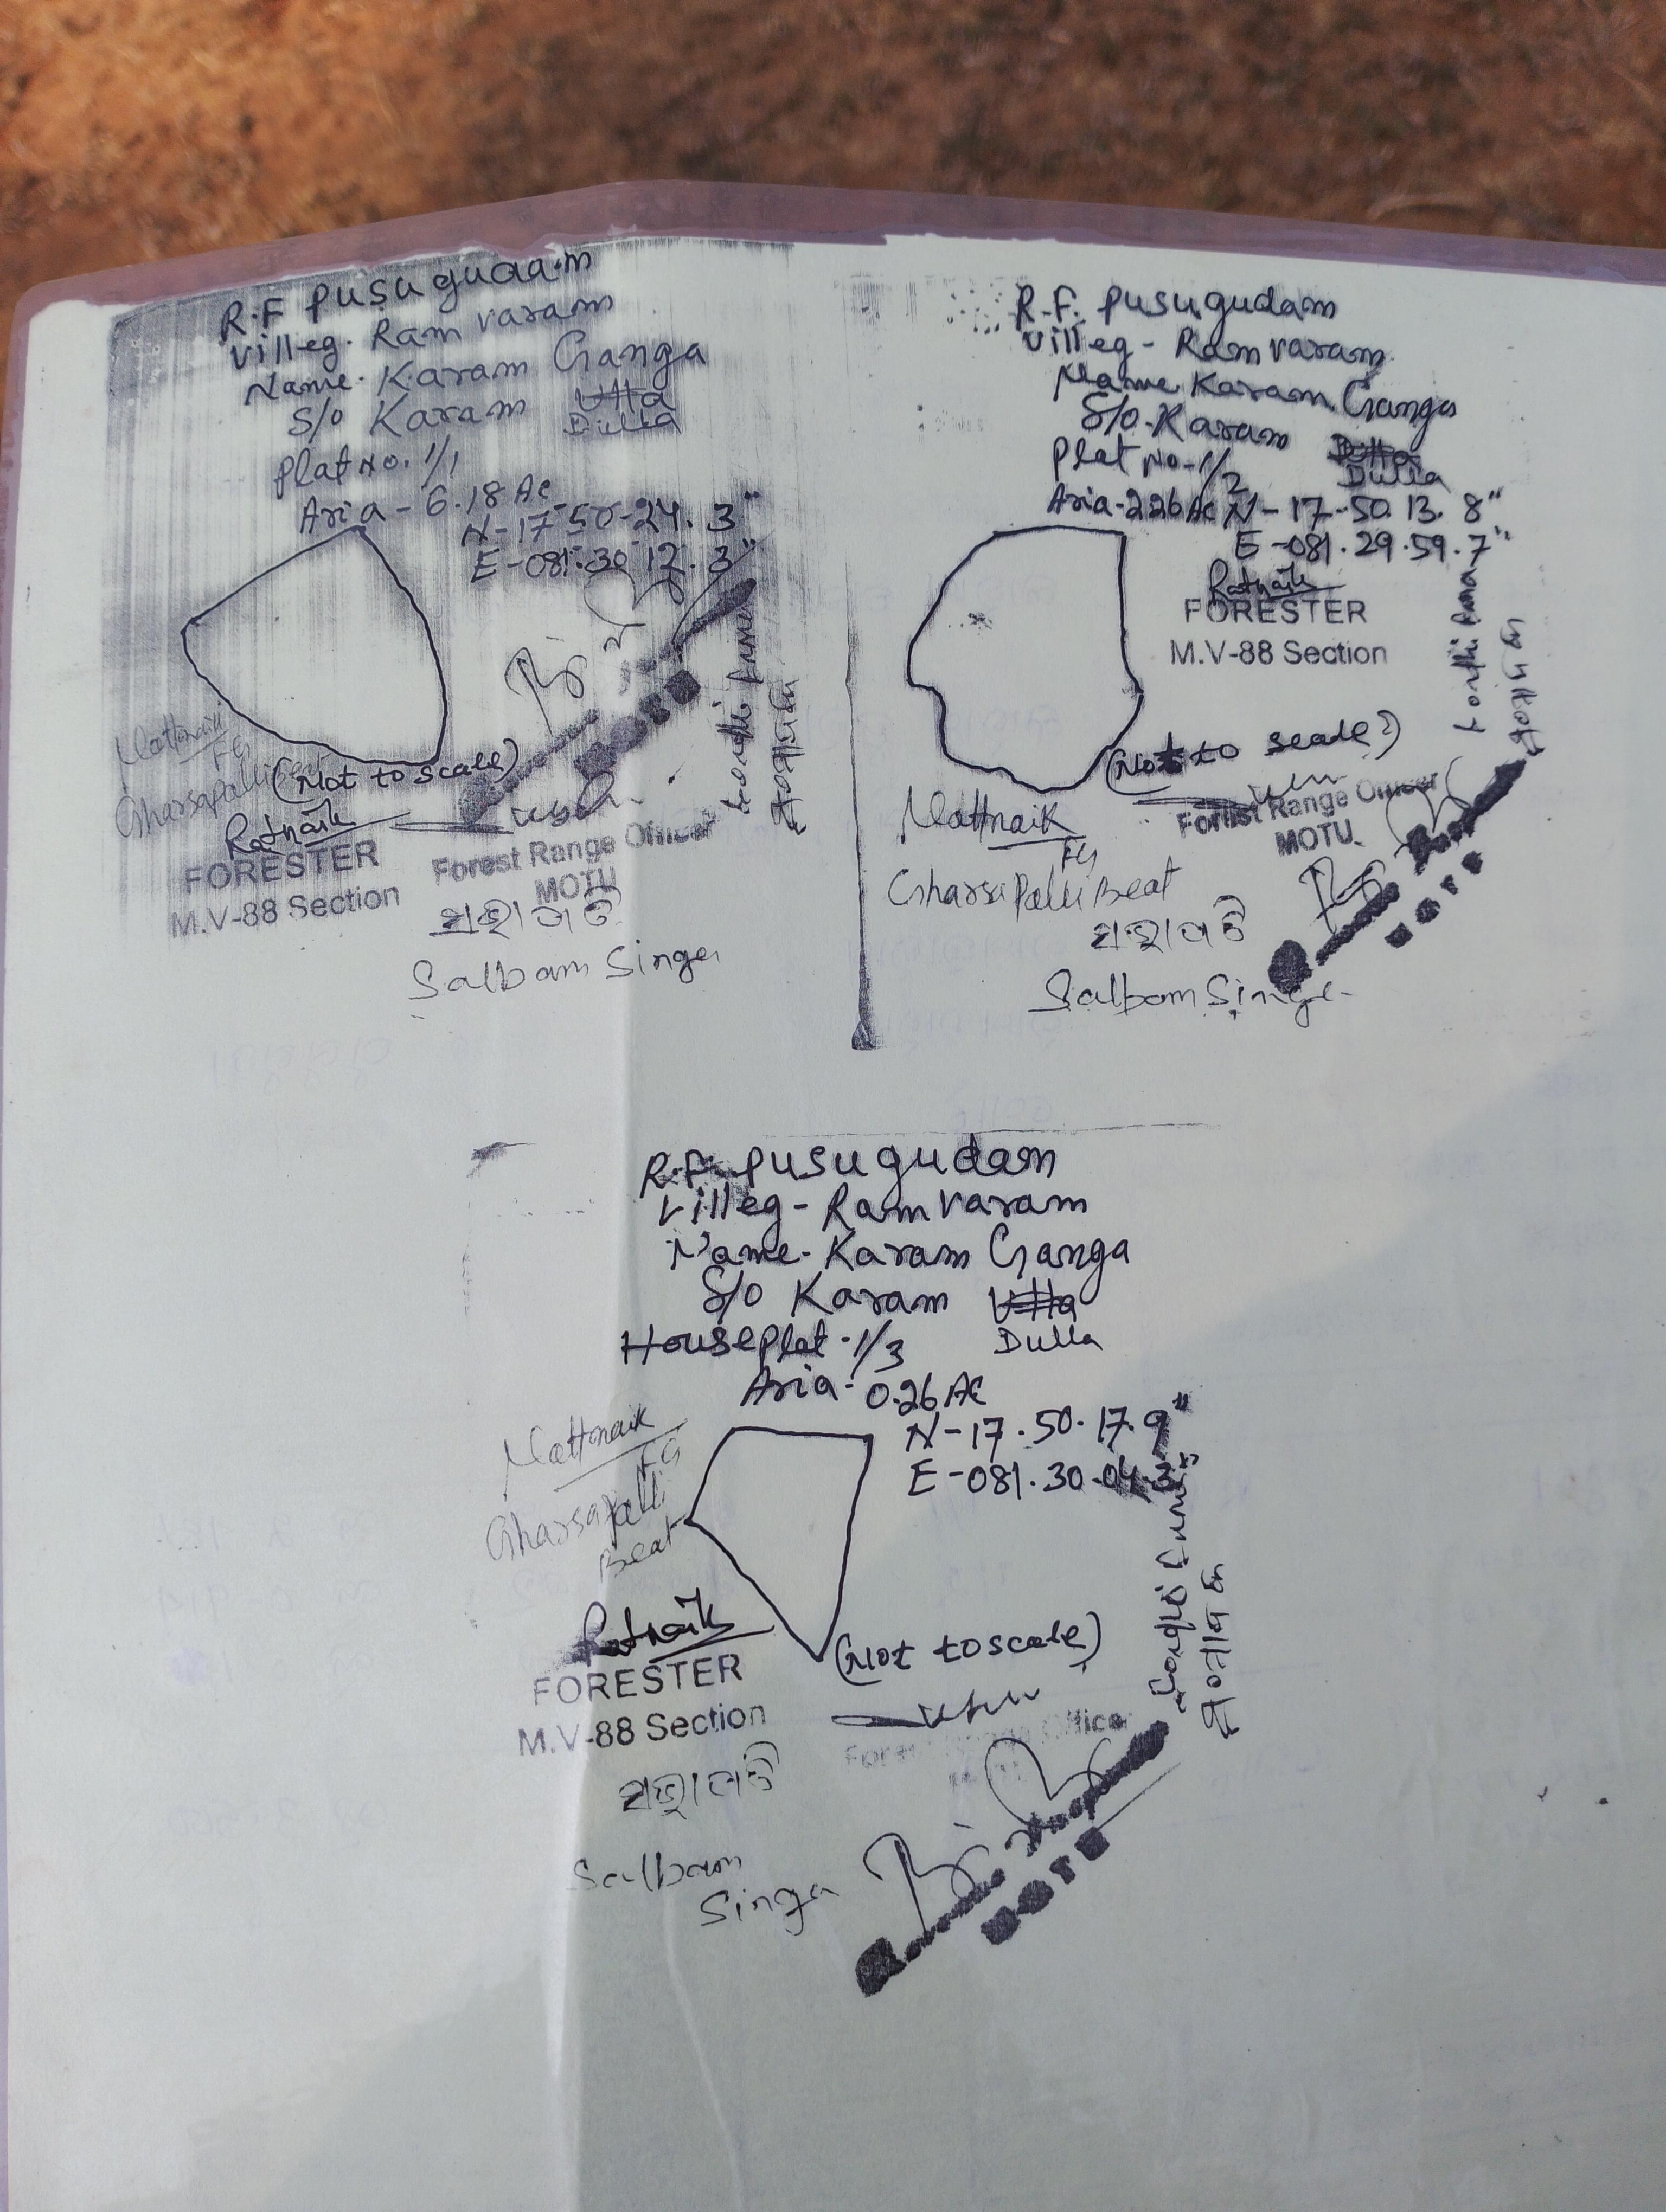 R.F Pusugudam
Villeg- Ramvaram
Name- Karam Ganga
S/o Karam Utta
Dulla
Plat No. 1/1
Aria - 6.18 Ac
N-17-50-24.3"
E-081-30-12.3"
(Not to scale)
Ratnaik
FORESTER
M.V-88 Section
Forest Range Officer
MOTU
Salbam Singa
R.F. Pusugudam
Villeg - Ramvaram
Name Karam Ganga
S/o. Karam
Dulla
Plat No-1/2
Aria-2.26 Ac N-17-50.13.8"
E-081.29.59.7"
Ratnaik
FORESTER
M.V-88 Section
(Not to scale)
Forest Range Officer
MOTU
Mattnaik
FG
Gharsapalli Beat
ସଭାପତି
Salbam Singa
R.F. Pusugudam
Villeg - Ramvaram
Name- Karam Ganga
S/o Karam Utta
Dulla
House Plat-1/3
Aria- 0.26 Ac
N-17.50.17.9"
E-081.30.04.3"
Mattnaik
FG
Gharsapalli
Beat
Ratnaik
FORESTER
M.V-88 Section
(Not to scale)
ସଭାପତି
Salbam
Singa